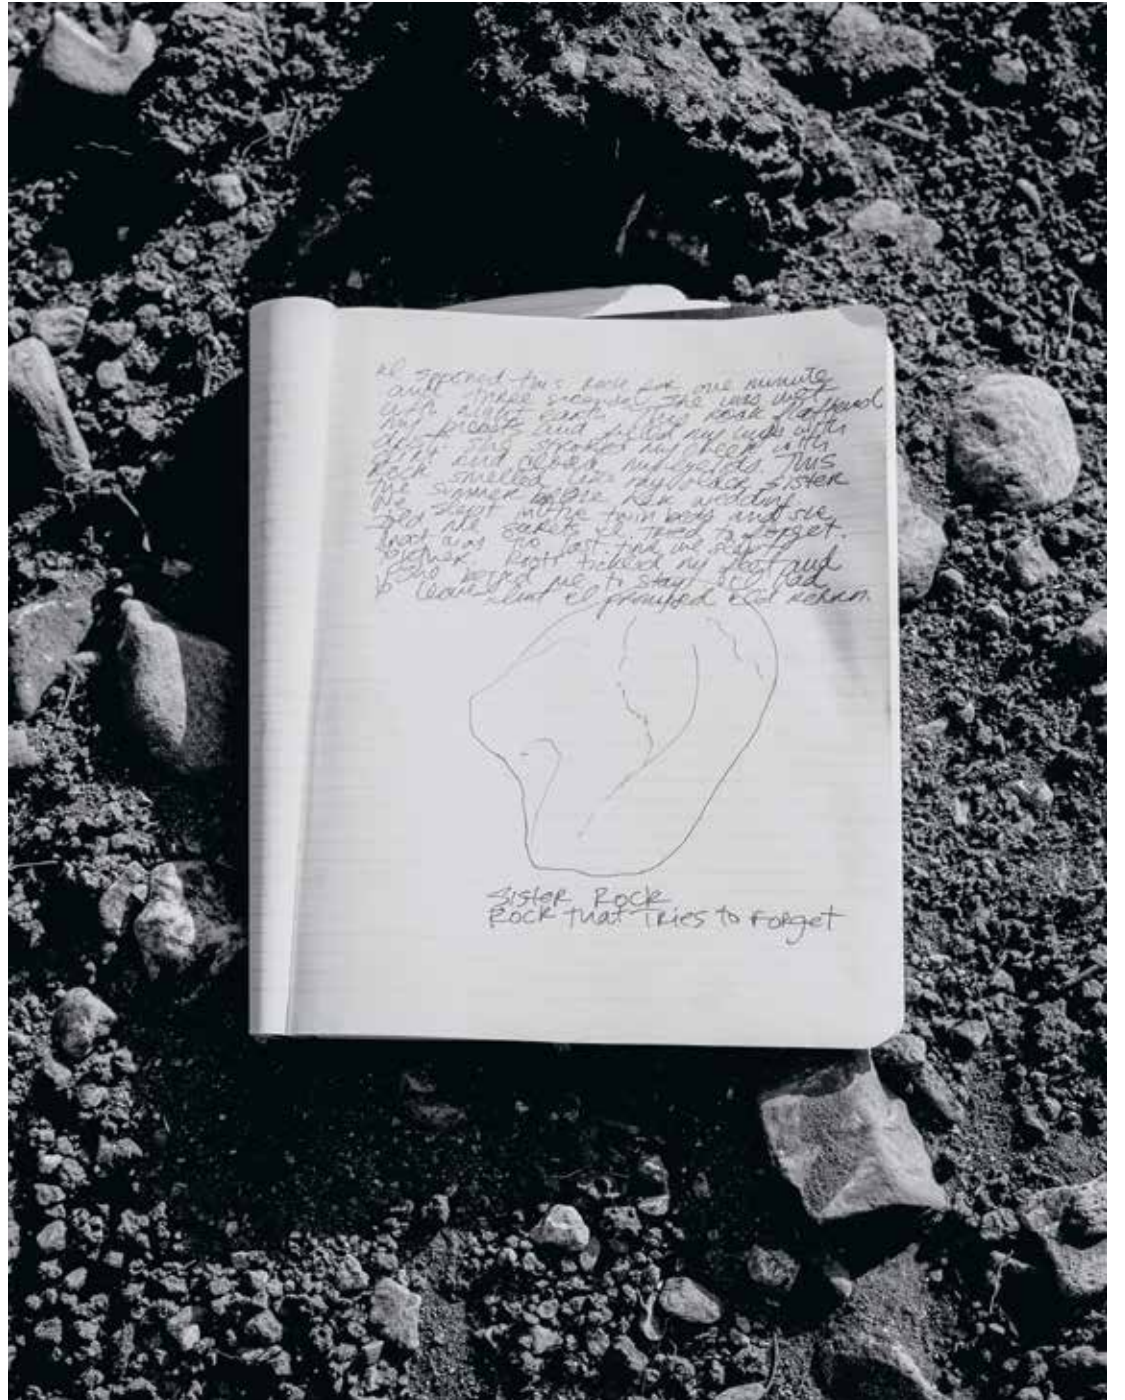 I spooned this rock for one minute
and three seconds. She was wet
with earth. This rock flattened
my breasts and filled my with
She my cheek with
and my eyelids. This
Rock smelled like my older sister
the summer before her wedding.
We slept in the twin beds and we
told the secrets I tried to forget.
Rock was to last and we slept
together. Root tickled my foot and
begged me to stay. I had
to leave but I promised I'd return
Sister Rock
Rock that Tries to Forget